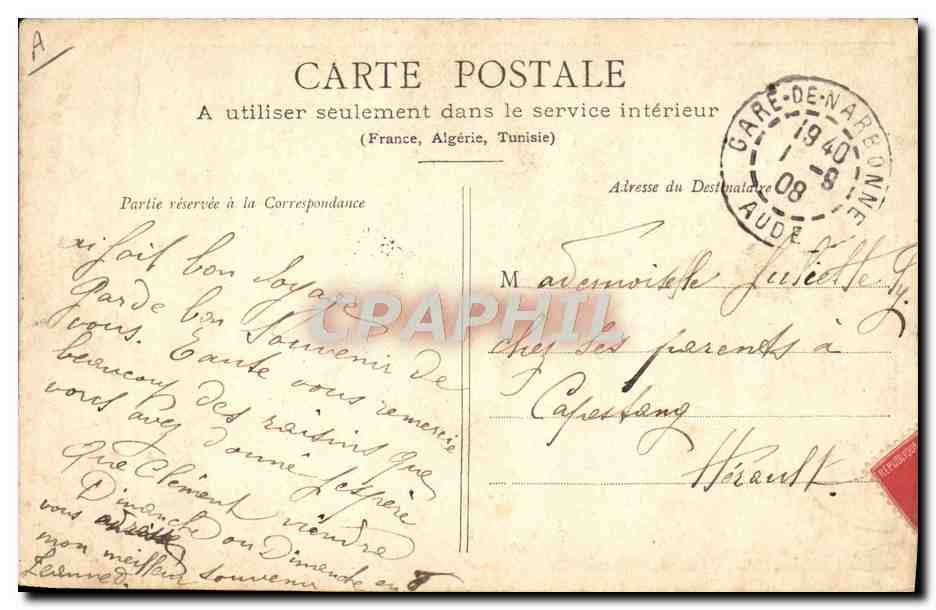 A
CARTE POSTALE
A utiliser seulement dans le service intérieur
(France, Algérie, Tunisie)
GARE-DE-NARBONNE
19 40
1 -9
08
AUDE
Partie réservée à la Correspondance
Adresse du Destinataire
ai fait bon voyage
Garde bon Souvenir de
vous. Tante vous remercie
beaucoup des raisins que
vous avez donné J'espère
que Clément viendra
Dimanche ou Dimanche en 8
vous adresse
mon meilleur souvenir
Mademoiselle Juliette Py
chez ses parents à
Capestang
Hérault.
CPAPHIL
REPUBLIQUE